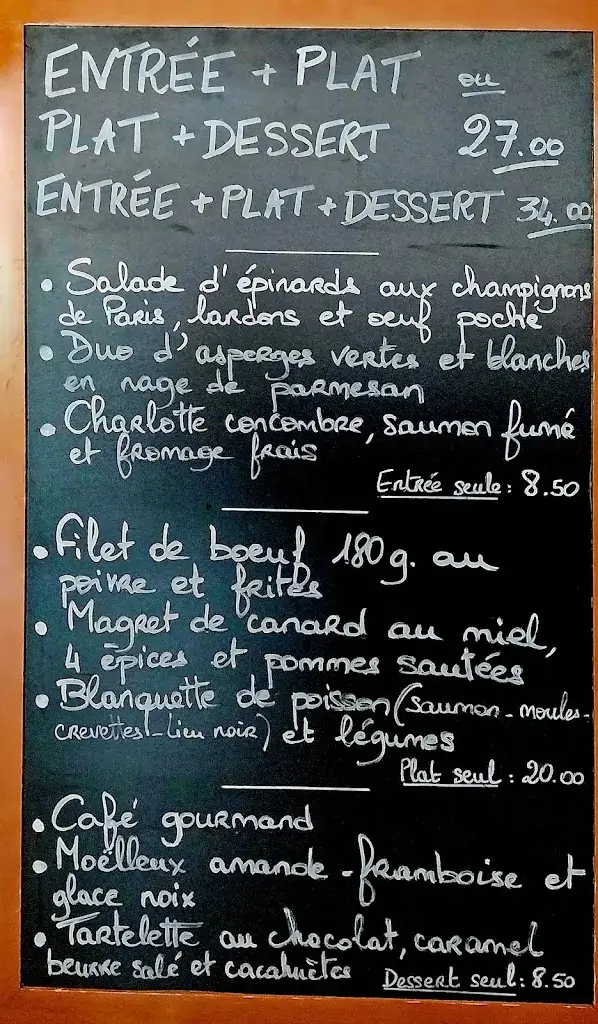 ENTRÉE + PLAT ou
PLAT + DESSERT 27.00
ENTRÉE + PLAT + DESSERT 34.00
• Salade d'épinards aux champignons
de Paris, lardons et oeuf poché
• Duo d'asperges vertes et blanches
en nage de parmesan
• Charlotte concombre, saumon fumé
et fromage frais
Entrée seule : 8.50
• Filet de boeuf 180g. au
poivre et frites
• Magret de canard au miel,
4 épices et pommes sautées
• Blanquette de poisson (saumon - moules -
crevettes - Lieu noir) et légumes
Plat seul : 20.00
• Café gourmand
• Moëlleux amande - framboise et
glace noix
• Tartelette au chocolat, caramel
beurre salé et cacahuètes Dessert seul : 8.50